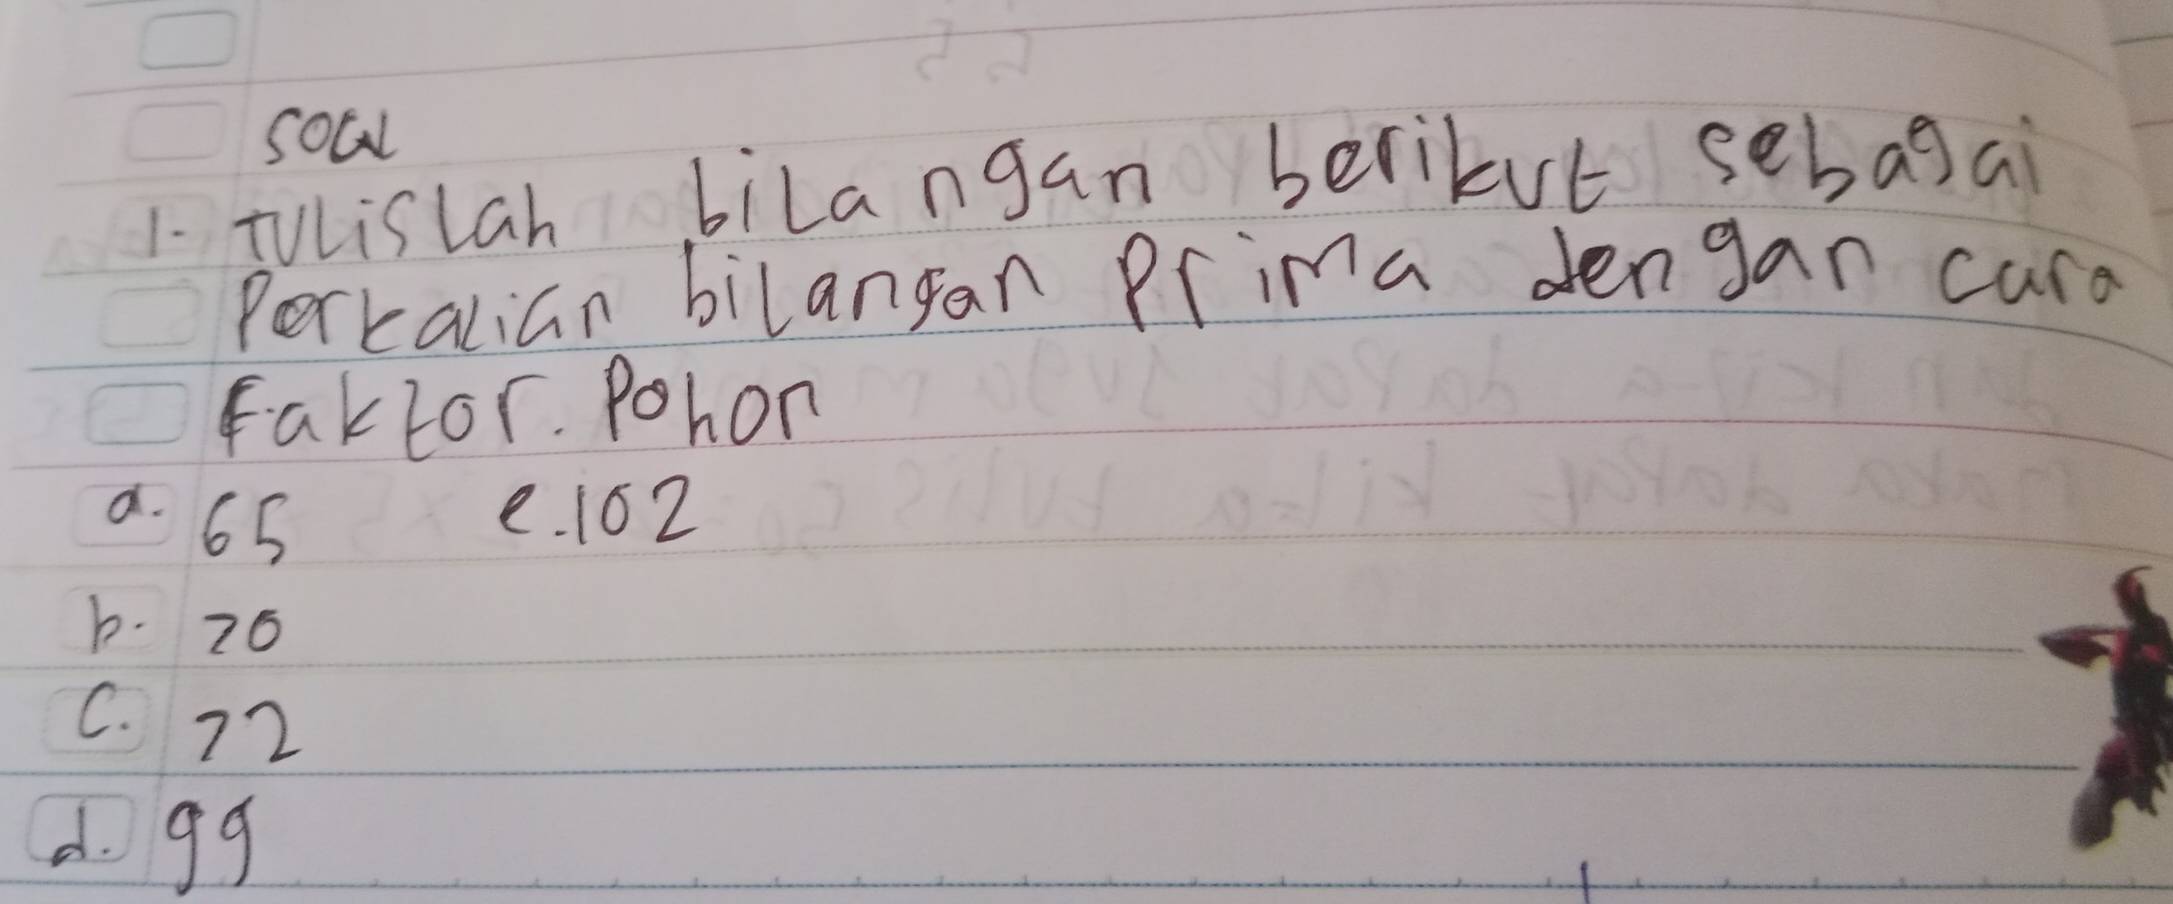 soal
1. tulislah bilangan berikut sebagai
Perkalian bilangan Prima dengan cara
Faktor. Pohon
a. 65 e. 102
b. 70
c. 72
d. 99